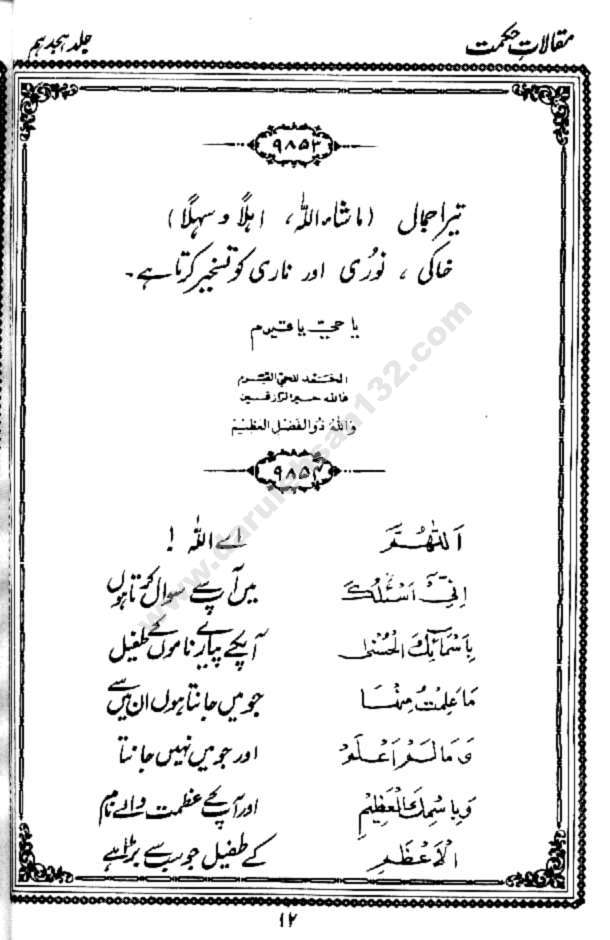 مقالاتِ حکمت جلد ہجدہم
۹۸۵۳
تیرا جمال (ماشاء اللہ، اھلاً و سہلاً)
خاکی ، نُوری اور ناری کو تسخیر کرتا ہے۔
یا حیّ یا قیوم
الحمد للحی القیوم
فالله خیر الرازقین
وَاللهُ ذُو الفَضْلِ العَظِیْمِ
۹۸۵۴
اَللّٰهُمَّ اے اللہ !
اِنِّیْ اَسْئَلُكَ میں آپ سے سوال کرتا ہوں
بِاَسْمَائِكَ الْحُسْنٰی آپکے پیارے ناموں کے طفیل
مَا عَلِمْتُ مِنْهَا جو میں جانتا ہوں ان میں سے
وَ مَا لَمْ اَعْلَمْ اور جو میں نہیں جانتا
وَ بِاسْمِكَ الْعَظِیْمِ اور آپ کے عظمت والے نام
الْاَعْظَمِ کے طفیل جو سب سے بڑا ہے
۱۲